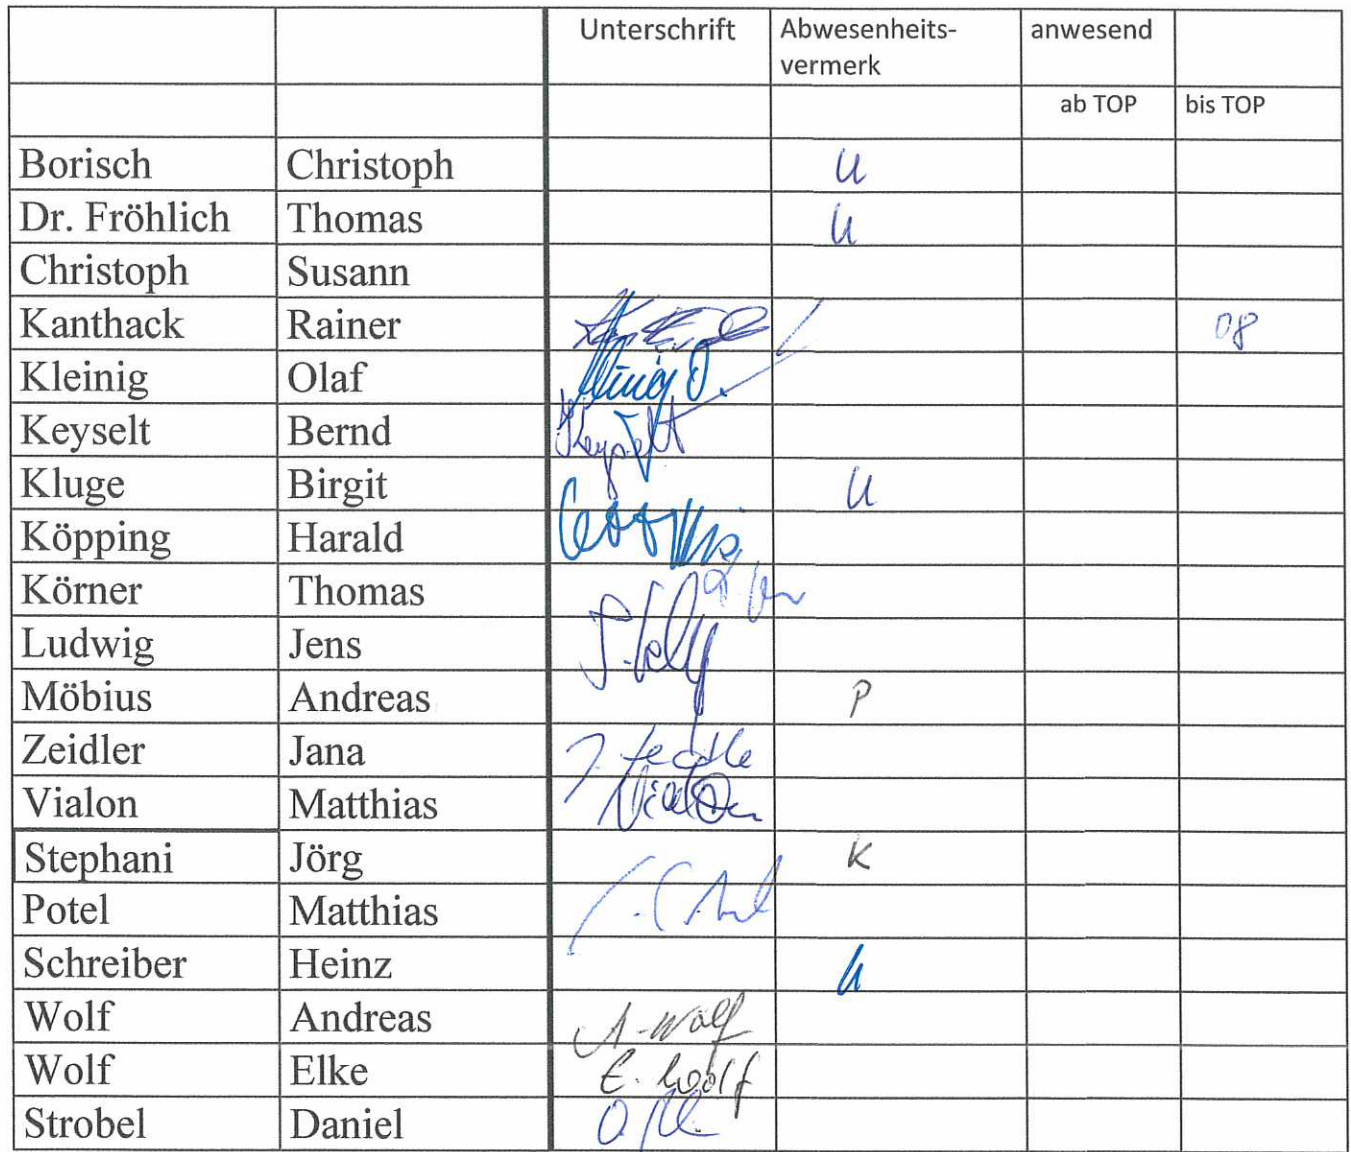 Unterschrift Abwesenheits- anwesend
vermerk
ab TOP bis TOP
Borisch Christoph U
Dr. Fröhlich Thomas U
Christoph Susann
Kanthack Rainer 08
Kleinig Olaf
Keyselt Bernd Keyselt
Kluge Birgit U
Köpping Harald
Körner Thomas
Ludwig Jens
Möbius Andreas P
Zeidler Jana
Vialon Matthias Vialon
Stephani Jörg K
Potel Matthias
Schreiber Heinz U
Wolf Andreas A. Wolf
Wolf Elke E. Wolf
Strobel Daniel